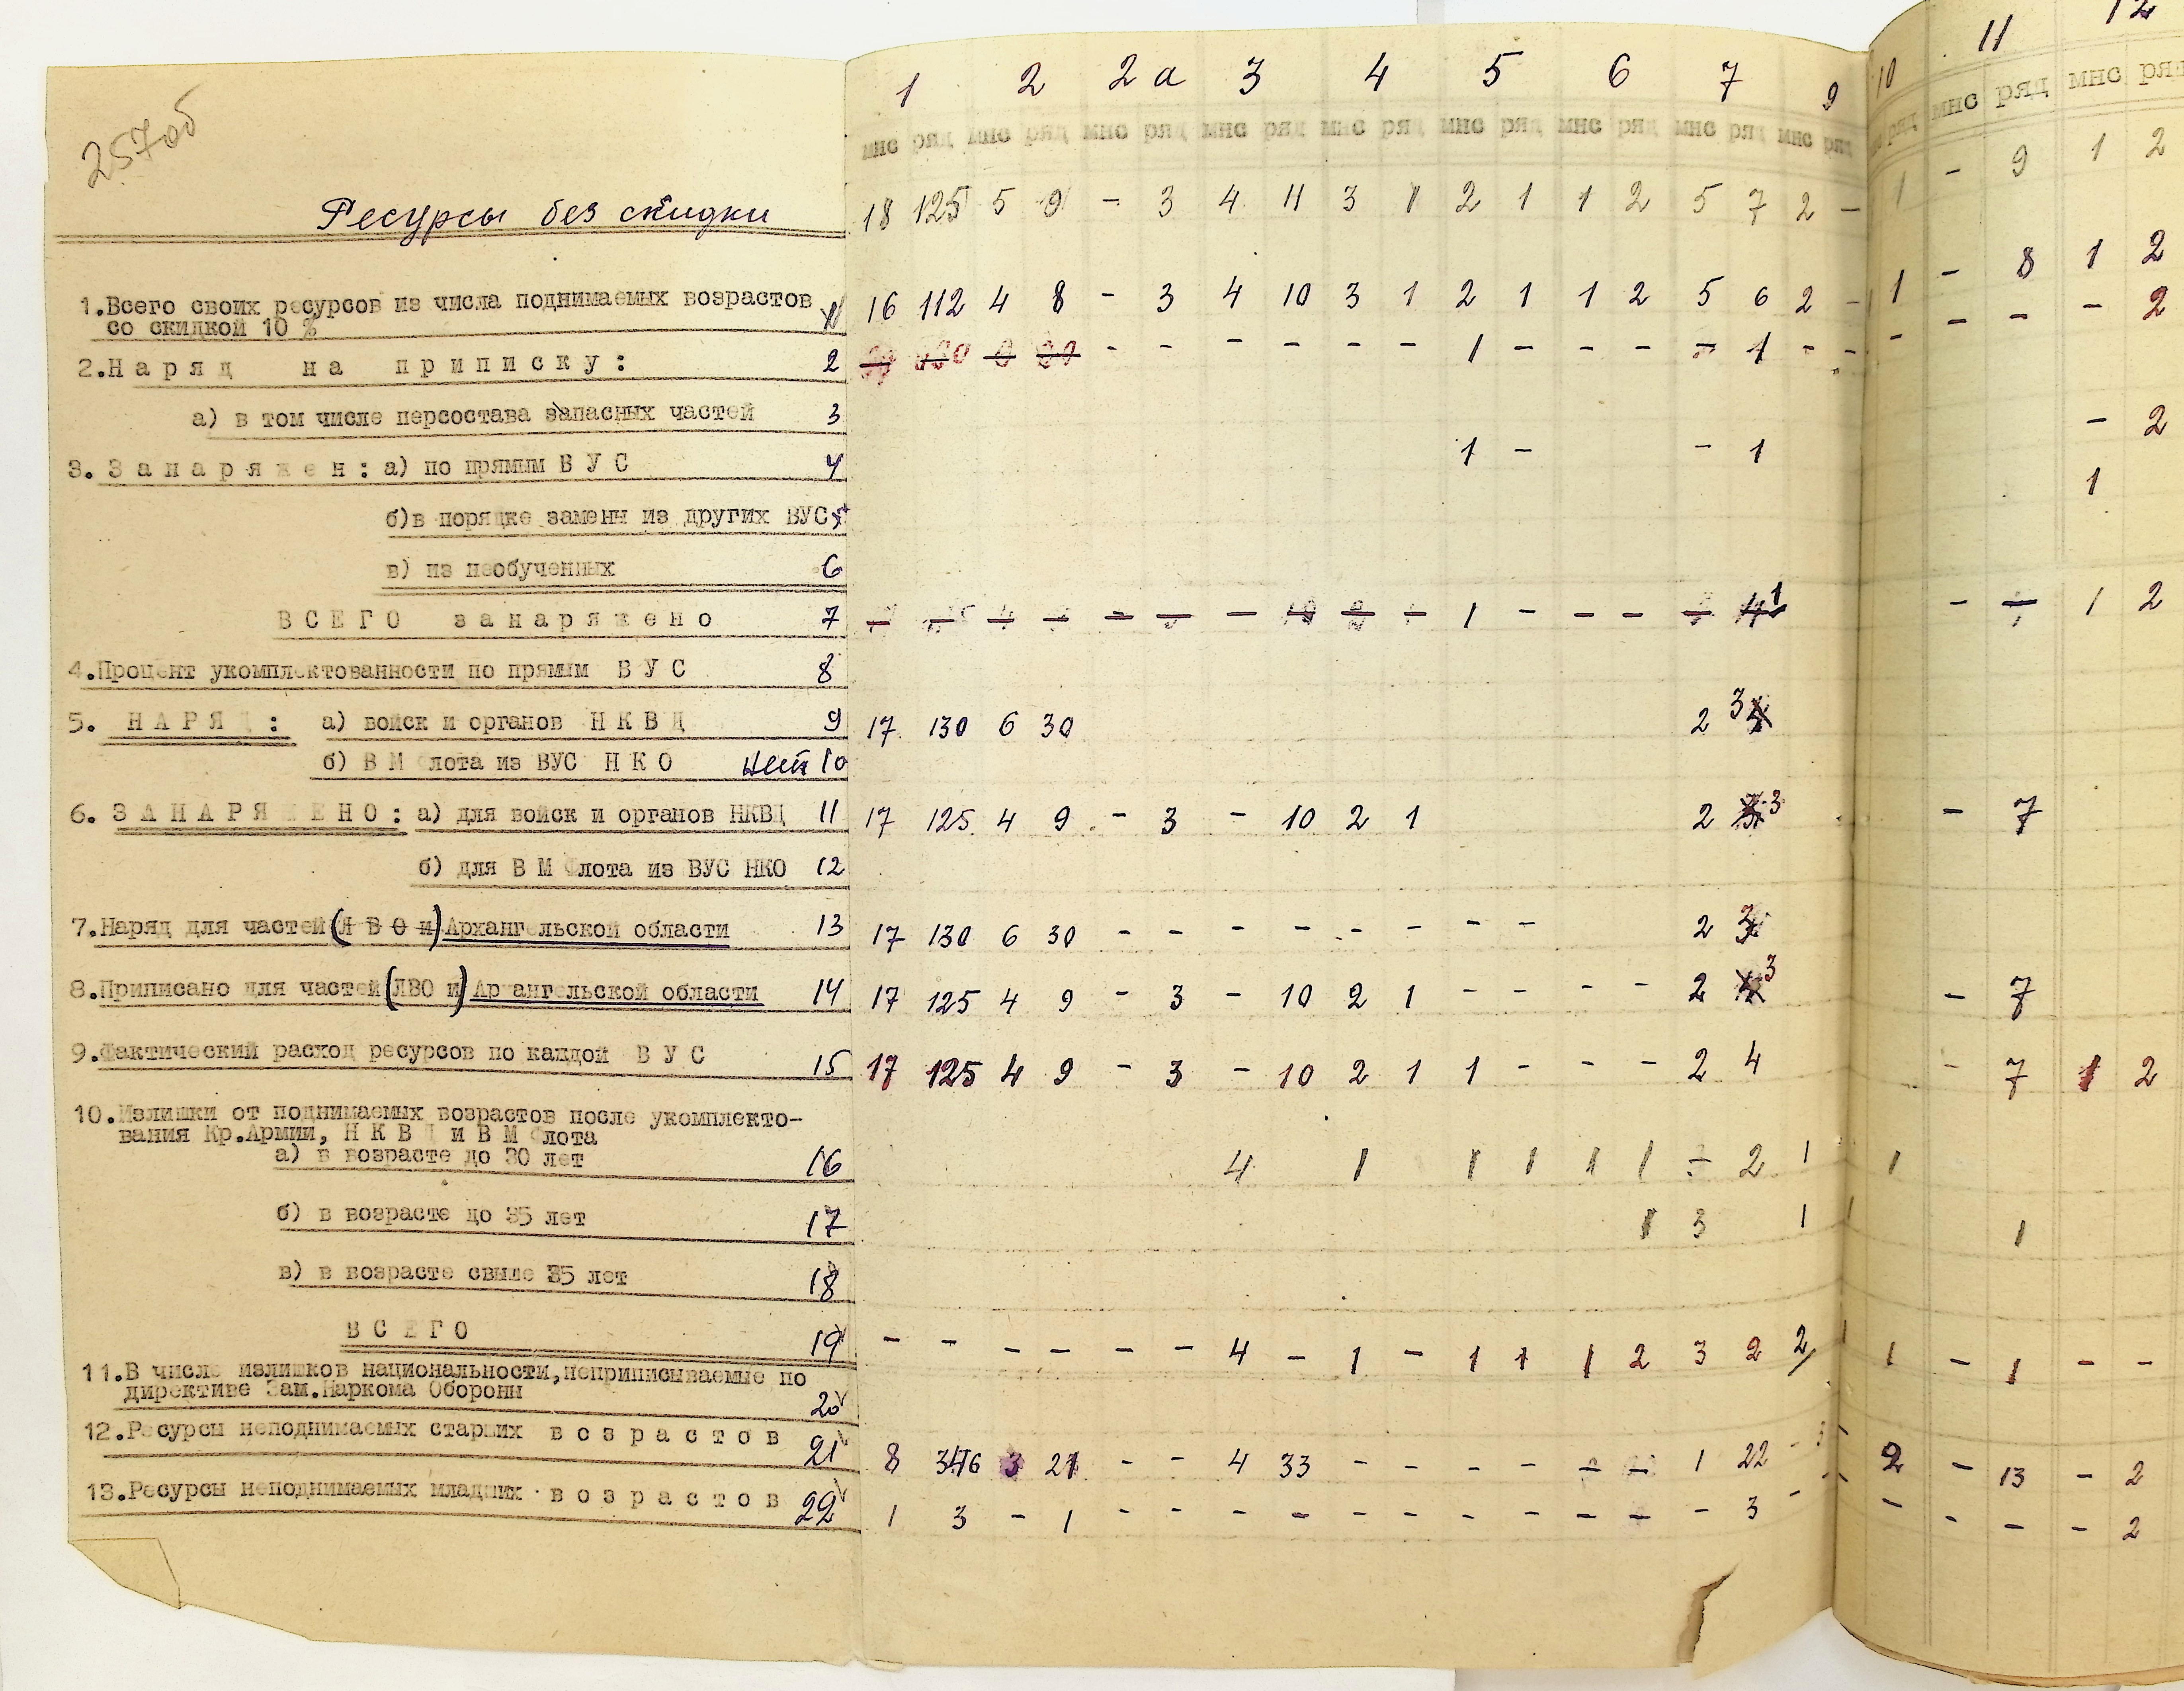 257об
1 2 2а 3 4 5 6 7 9 10 11 12
мнс ряд мнс ряд мнс ряд мнс ряд мнс ряд мнс ряд мнс ряд мнс ряд мнс ряд ряд мнс ряд мнс ряд
Ресурсы без скидки 18 125 5 9 - 3 4 11 3 1 2 1 1 2 5 7 2 - 1 - 9 1 2
1.Всего своих ресурсов из числа поднимаемых возрастов
со скидкой 10 % 16 112 4 8 - 3 4 10 3 1 2 1 1 2 5 6 2 - 1 - 8 1 2
2.Наряд на приписку: 2 - - - - - - 1 - - - - 1 - - - - - - 2
а) в том числе персостава запасных частей 3
3. Занаряжен: а) по прямым ВУС 4 1 - - 1 - 2
б)в порядке замены из других ВУС 5 1
в) из необученных 6
ВСЕГО занаряжено 7 1 - - - 1 - 1 2
4.Процент укомплектованности по прямым ВУС 8
5. НАРЯД: а) войск и органов НКВД 9 17 130 6 30 2 3
б) В М Флота из ВУС НКО нет 10
6. ЗАНАРЯЖЕНО: а) для войск и органов НКВД 11 17 125 4 9 - 3 - 10 2 1 2 3 - 7
б) для В М Флота из ВУС НКО 12
7.Наряд для частей (ЛВО и) Архангельской области 13 17 130 6 30 - - - - - - - - 2 3
8.Приписано для частей (ЛВО и) Архангельской области 14 17 125 4 9 - 3 - 10 2 1 - - - - 2 3 - 7
9.Фактический расход ресурсов по каждой ВУС 15 17 125 4 9 - 3 - 10 2 1 1 - - - 2 4 - 7 1 2
10.Излишки от поднимаемых возрастов после укомплекто-
вания Кр.Армии, НКВД и В М Флота
а) в возрасте до 30 лет 16 4 1 1 1 1 1 - 2 1 1
б) в возрасте до 35 лет 17 1 3 1 1 1
в) в возрасте свыше 35 лет 18
ВСЕГО 19 - - - - - - 4 - 1 - 1 1 1 2 3 2 2 1 1 - 1 - -
11.В числе излишков национальности,неприписываемые по
директиве Зам.Наркома Обороны 20
12.Ресурсы неподнимаемых старших возрастов 21 8 346 3 21 - - 4 33 - - - - - - 1 22 - 2 - 13 - 2
13.Ресурсы неподнимаемых младших возрастов 22 1 3 - 1 - - - - - - - - - - - 3 - - - - - - 2